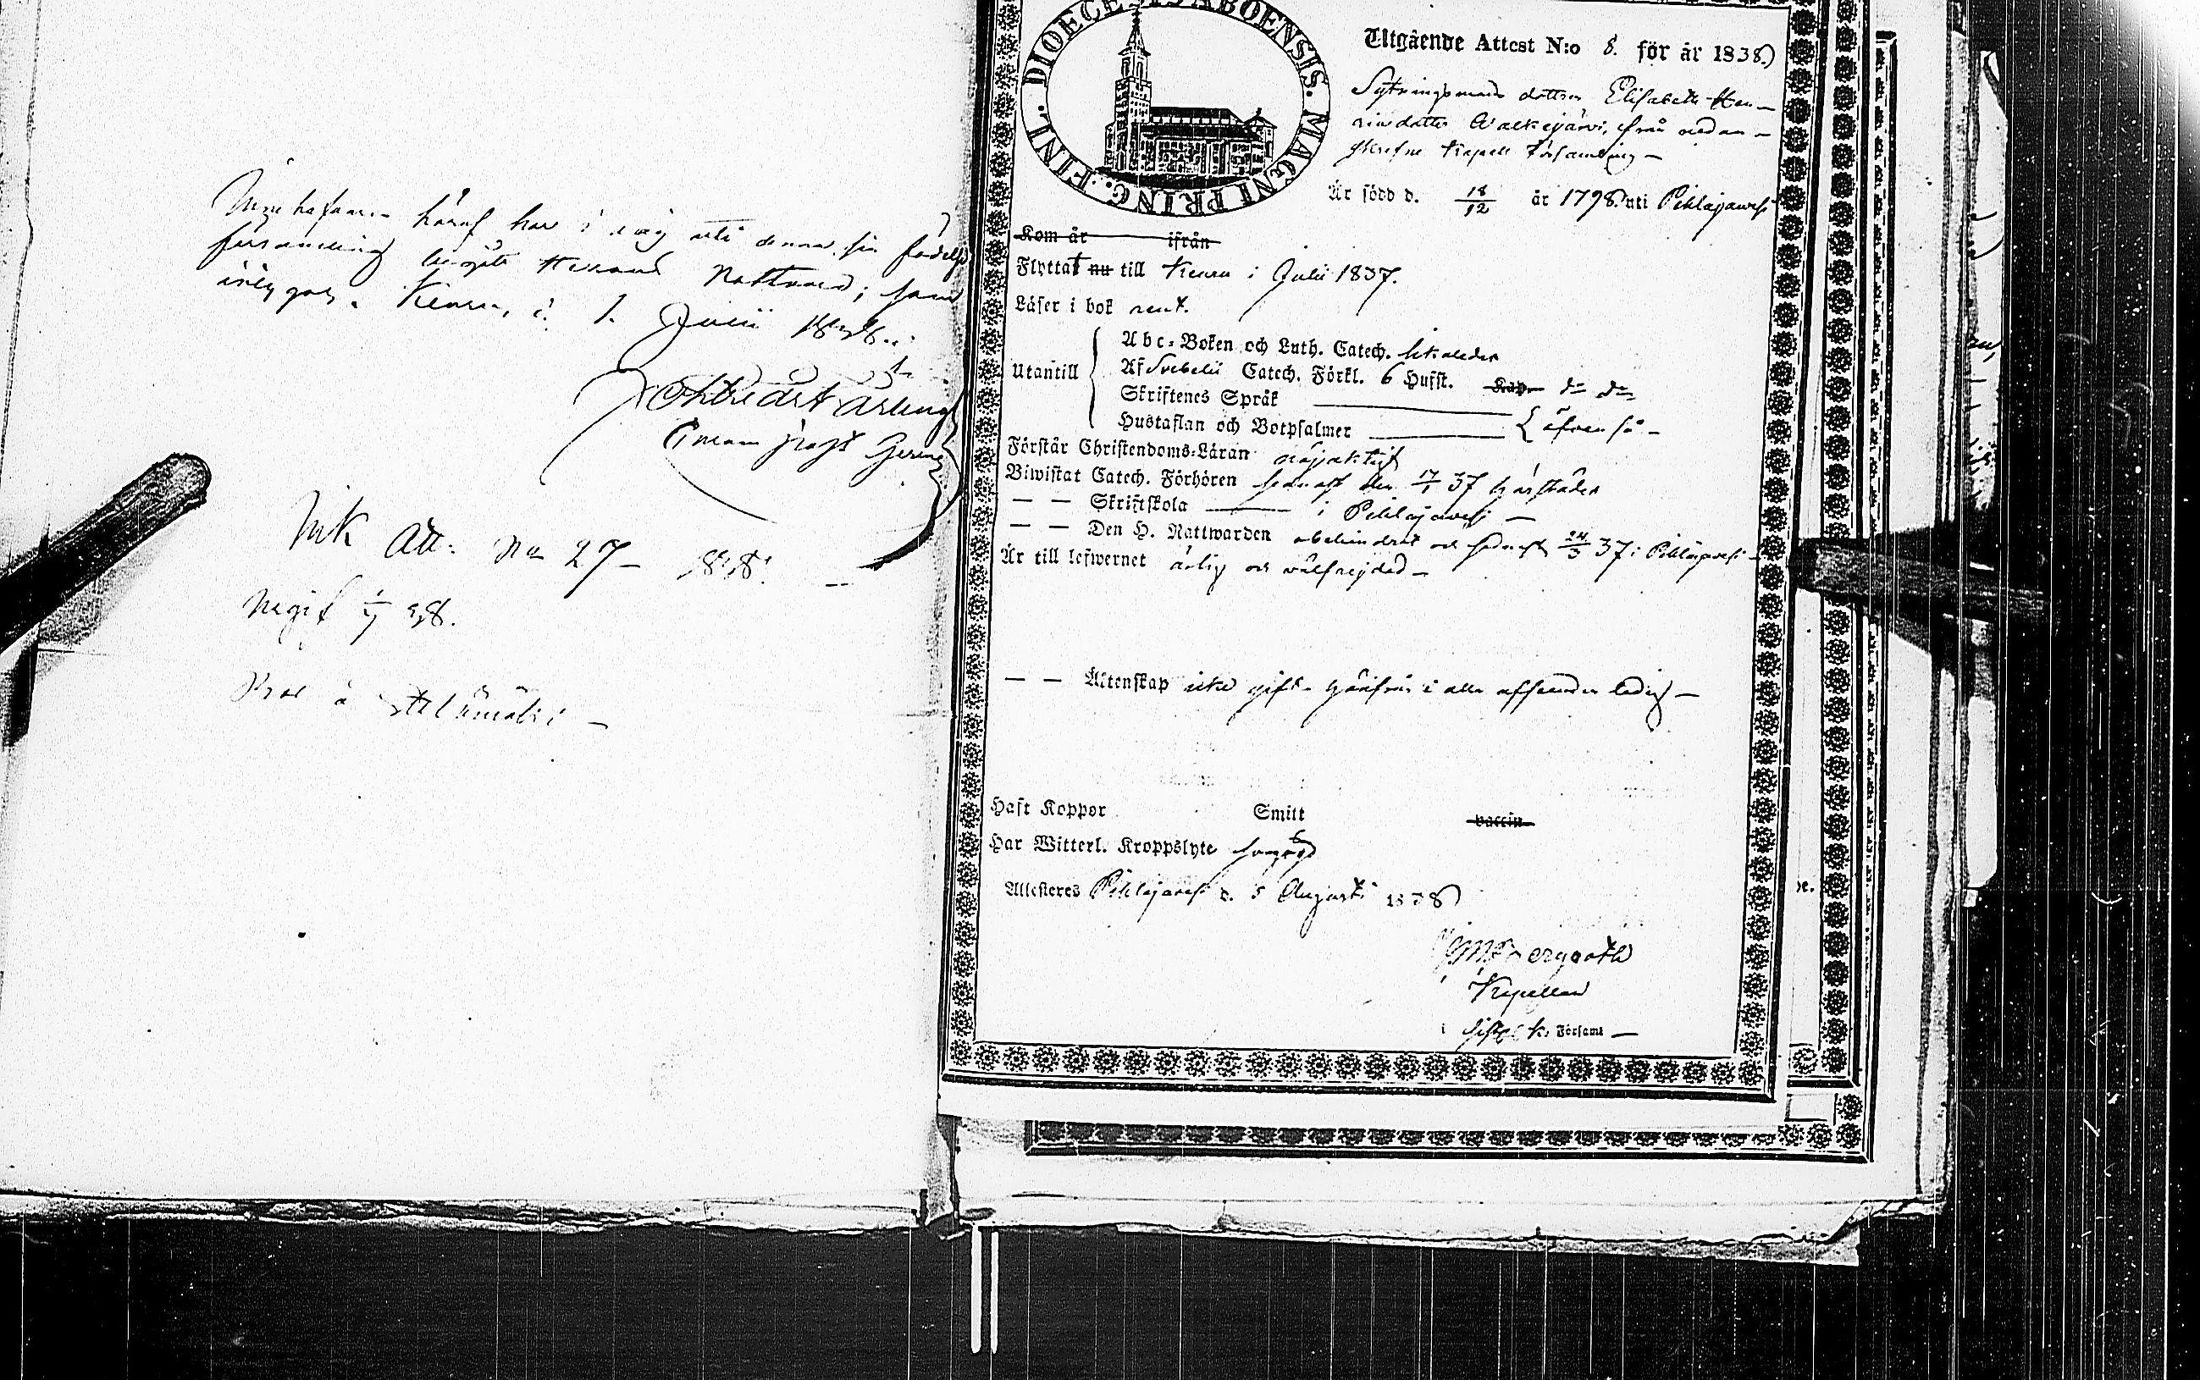 häraf har i dag uti denna sin födelse
församling begått Herrans Nattvard; som
intygar. Keuru, d. 1. Julii 1838.
Ink Att. No 27 - 1838. -
38.
DIOECESIS ABOENSIS. MAGNI PRINC. FINL.
Utgående Attest N:o 8. för år 1838
Sytningsmans dottren Elisabeth Hen-
riksdotter Walkejärvi, från nedan-
skrefne Kapell Församling -
Är född d. 18/12 år 1798 uti Pihlajavesi
Kom år ifrån
Flyttat nu till Keuru i Julii 1837.
Läser i bok rent.
Utantill
Abc-Boken och Luth. Catech. likaledes
Af Svebelii Catech. Förkl. 6 Hufst. Kap. do do
Skriftenes Språk
Hustaflan och Botpsalmer äfven så -
Förstår Christendoms-Läran nöjaktigt
Biwistat Catech. Förhören senast den 17/1 37 härstädes
— — Skriftskola i Pihlajavesi -
— — Den H. Nattwarden obehindrat och senast 24/3 37 i Pihlajavesi -
Är till lefwernet ärlig och välfrejdad -
— — Äktenskap icke gift. härifrån i alla afseenden ledig -
Haft Koppor Smitt vaccin
Har Witterl. Kroppslyte
Attesteras Pihlajavesi d. 5 Augusti 1838
Kapellan
Församl